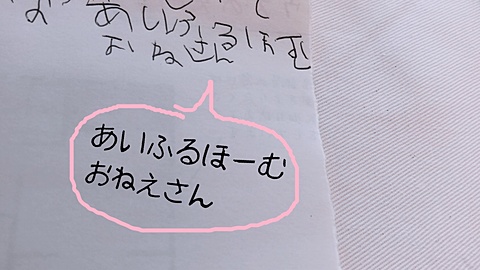 あいふるほむ
おねさん
あいふるほーむ
おねえさん